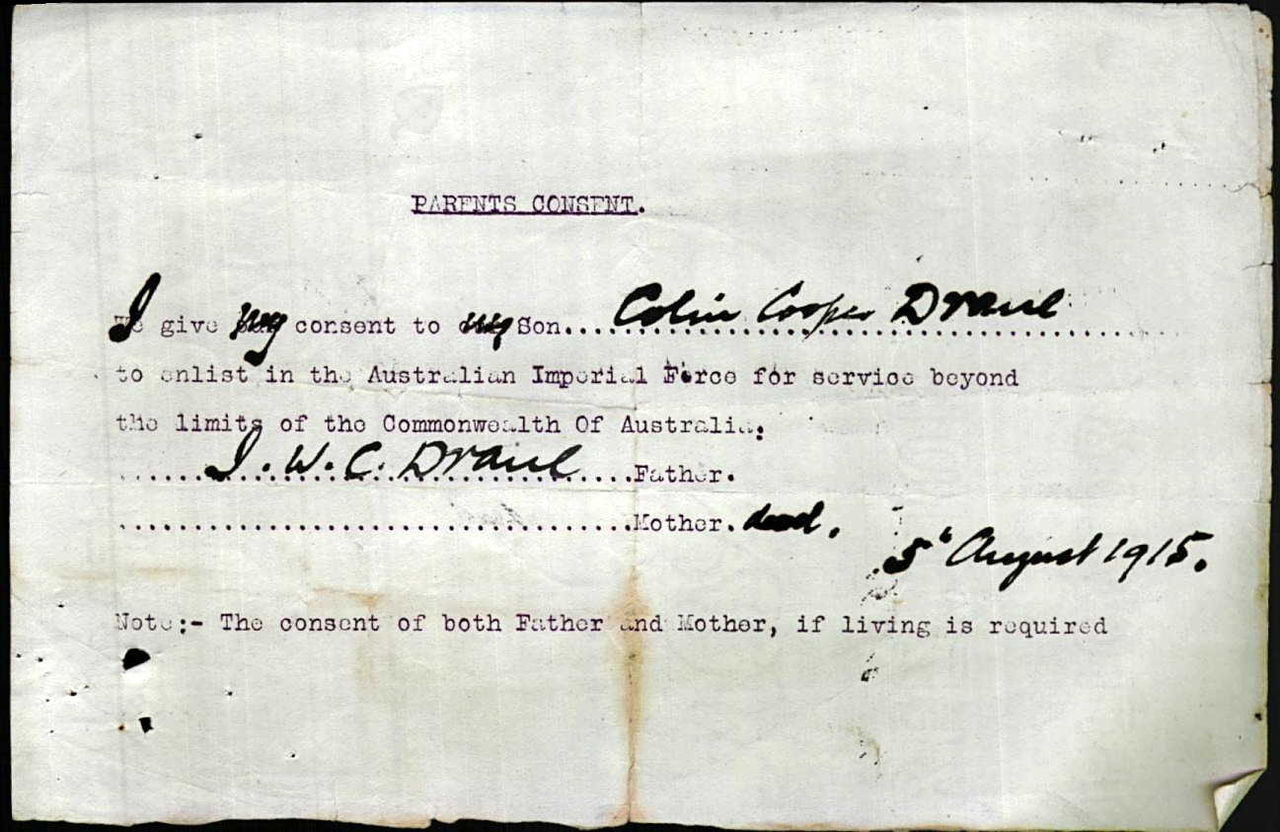 PARENTS CONSENT.
I give my consent to my Son....Colin Cooper Draul
to enlist in the Australian Imperial Force for service beyond
the limits of the Commonwealth Of Australia.
......I.W.C. Draul....Father.
..................................Mother. dead.
5' August 1915.
Note:- The consent of both Father and Mother, if living is required